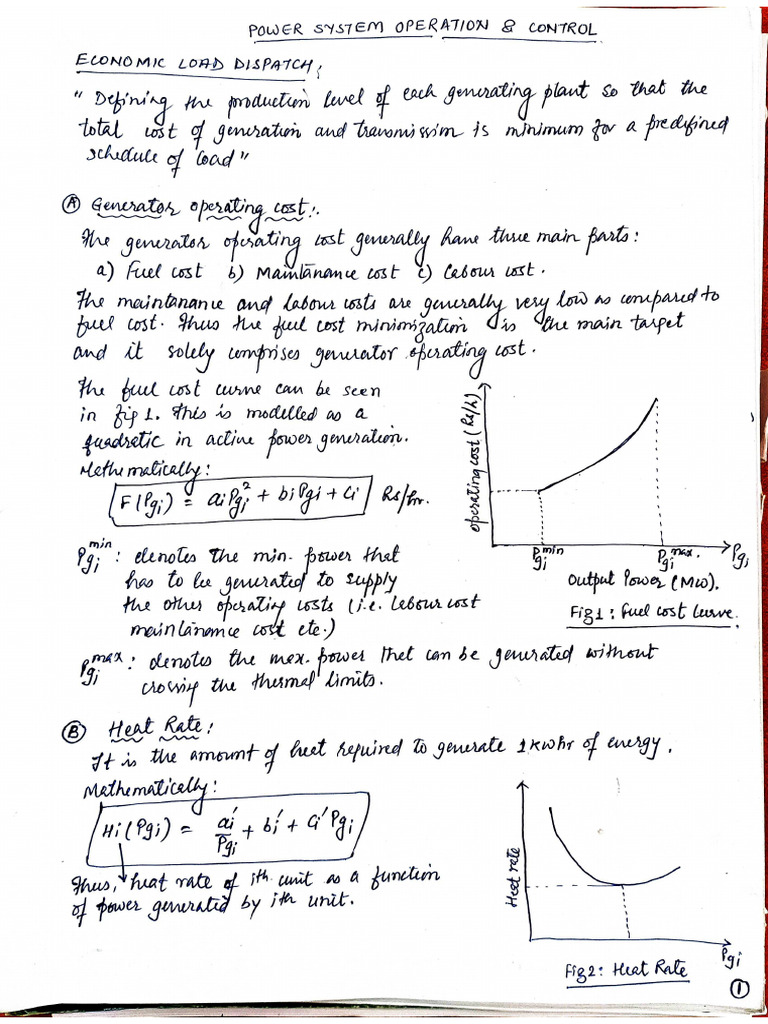 POWER SYSTEM OPERATION & CONTROL
ECONOMIC LOAD DISPATCH:
" Defining the production level of each generating plant so that the
total cost of generation and transmission is minimum for a predefined
schedule of load"
Ⓐ Generator operating cost:
The generator operating cost generally have three main parts:
a) Fuel cost b) Maintanance cost c) Labour cost.
The maintanance and labour costs are generally very low as compared to
fuel cost. Thus the fuel cost minimization is the main target
and it solely comprises generator operating cost.
The fuel cost curve can be seen
in fig 1. This is modelled as a
quadratic in active power generation.
Mathematically:
F(Pgi) = aiPgi² + biPgi + ci Rs/hr.
operating cost (Rs/h)
Pgi^min Pgi^max. Pgi
Output Power (MW).
Fig1: Fuel cost curve.
Pgi^min : denotes the min. power that
has to be generated to supply
the other operating costs (i.e. labour cost
maintanance cost etc.)
Pgi^max : denotes the max. power that can be generated without
crossing the thermal limits.
Ⓑ Heat Rate:
It is the amount of heat required to generate 1kwhr of energy.
Mathematically:
Hi(Pgi) = ai'/Pgi + bi' + ci'Pgi
Thus, heat rate of ith unit as a function
of power generated by ith unit.
Heat rate
Pgi
Fig2: Heat Rate
①